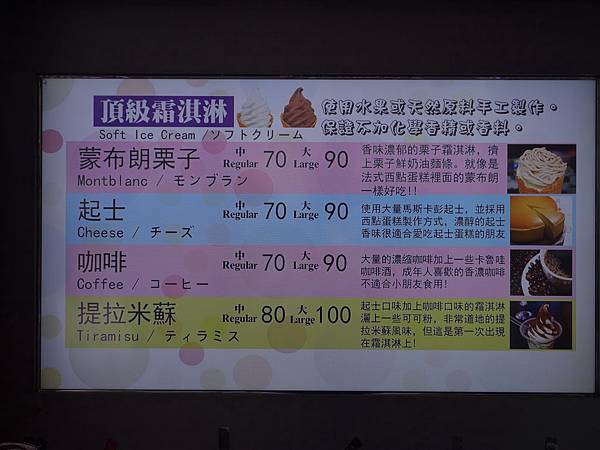 頂級霜淇淋
Soft Ice Cream /ソフトクリーム
使用水果或天然原料手工製作。
保證不加化學香精或香料。
蒙布朗栗子
Montblanc / モンブラン
中 Regular 70 大 Large 90
香味濃郁的栗子霜淇淋，擠
上栗子鮮奶油麵條。就像是
法式西點蛋糕裡面的蒙布朗
一樣好吃!!
起士
Cheese / チーズ
中 Regular 70 大 Large 90
使用大量馬斯卡彭起士，並採用
西點蛋糕製作方式，濃醇的起士
香味很適合愛吃起士蛋糕的朋友
咖啡
Coffee / コーヒー
中 Regular 70 大 Large 90
大量的濃縮咖啡加上一些卡魯哇
咖啡酒，成年人喜歡的香濃咖啡
不適合小朋友食用!
提拉米蘇
Tiramisu / ティラミス
中 Regular 80 大 Large 100
起士口味加上咖啡口味的霜淇淋
灑上一些可可粉，非常道地的提
拉米蘇風味，但這是第一次出現
在霜淇淋上!